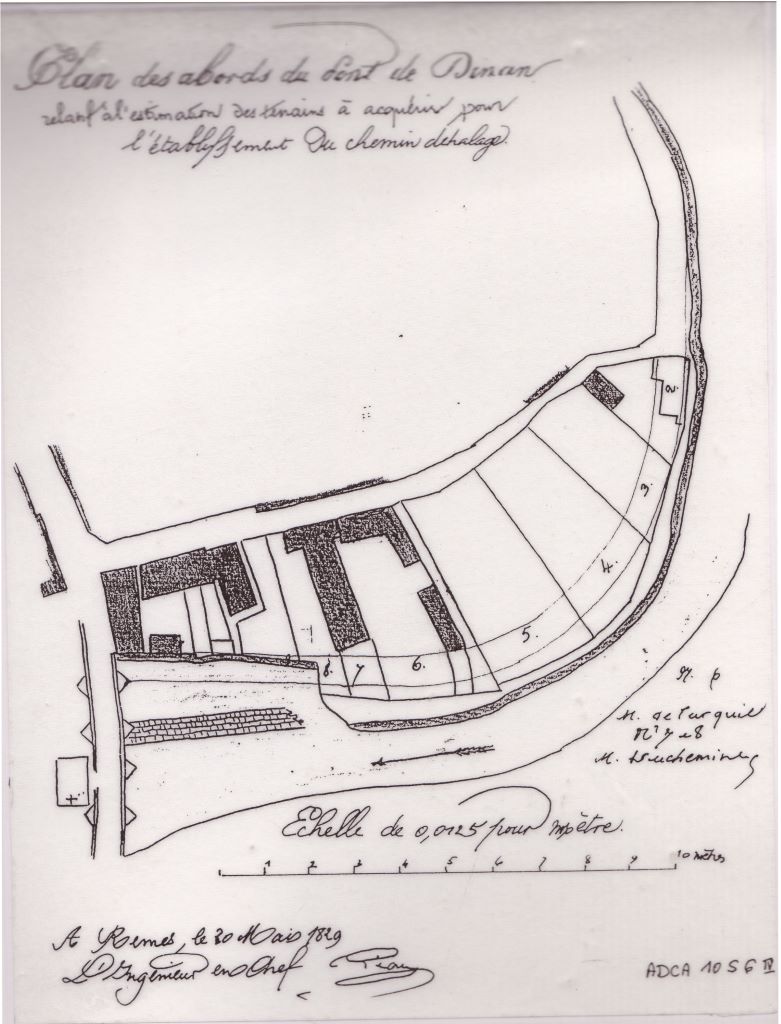 Plan des abords du Pont de Dinan
relatif à l'estimation des terrains à acquérir pour
l'établissement Du chemin de halage.
2.
3.
4.
5.
1
8. 7 6.
N. 6
M. de
Nos 7 et 8
M. Duchemin
Echelle de 0,0125 pour mètre.
1 2 3 4 5 6 7 8 9 10 mètres
A Rennes, le 30 1829
L'Ingénieur en Chef
ADCA 10 S 6 IV